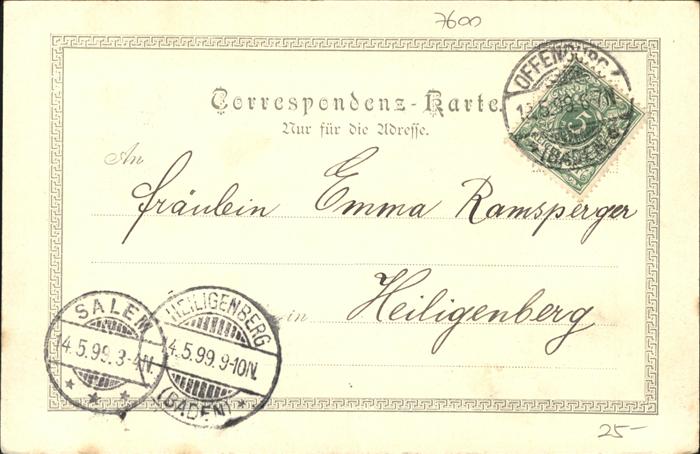 7600
OFFENBURG
13.5.99.6-7N.
(BADEN)
5
Correspondenz-Karte.
Nur für die Adresse.
An
Fräulein Emma Ramsperger
in Heiligenberg
SALEM
14.5.99.3-4N.
HEILIGENBERG
14.5.99.9-10N.
(BADEN)
25-